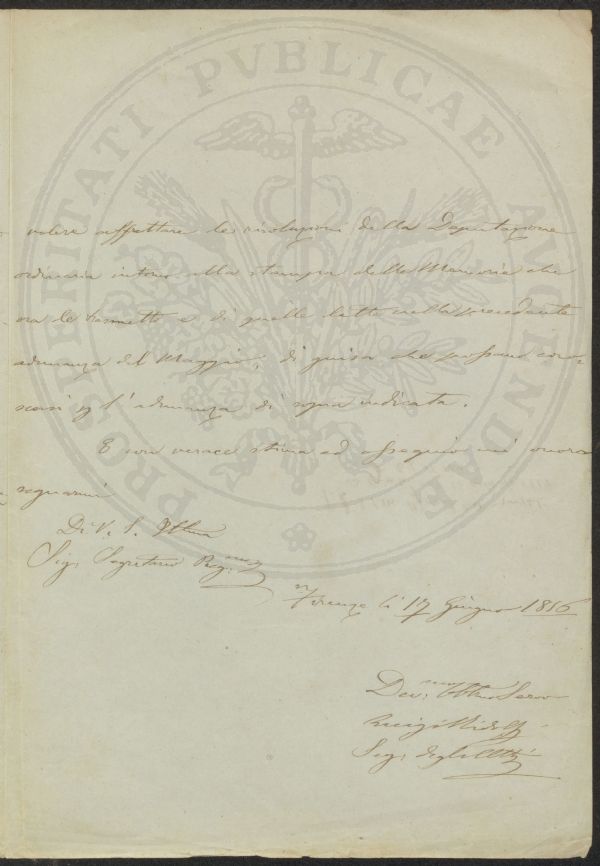 PROSPERITATI PVBLICAE AVGENDAE
volere affrettare le risoluzioni della Deputazione
ordinaria intorno alla stampa delle Memorie che
ora le trasmetto e di quelle lette nella precedente
adunanza del Maggio, di guisa che possano cono=
scersi p l'adunanza di sopra indicata.
E con verace stima ed ossequio mi onoro
segnarmi
Di V. S. Illma
Sig. Segretario Reg.
Firenze li 17 Giugno 1856
Dev.mo Obblmo Servo
Luigi Ridolfi
Seg. degli Atti